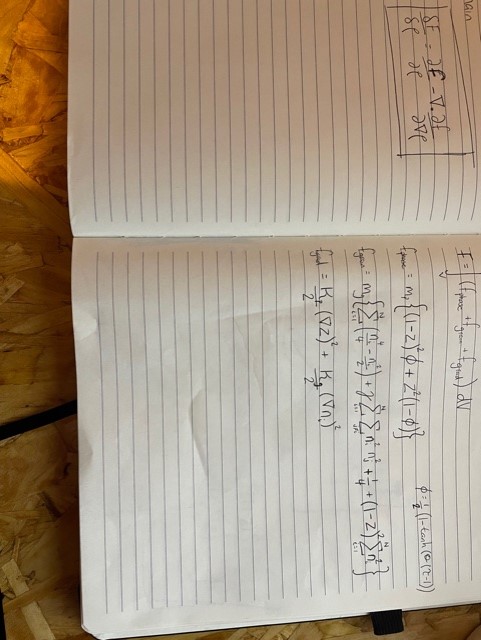 δF/δρ = ∂f/∂ρ - ∇·∂f/∂∇ρ
F = ∫_V (f_phase + f_grain + f_grad) dV
f_phase = m_p {(1-z)²φ + z²(1-φ)}
φ = 1/2 (1 - tanh(θ(τ-1))
f_grain = m_g {∑_{i=1}^{N} (η_i⁴/4 - η_i²/2) + γ ∑_{i=1}^{N} ∑_{j≠i}^{N} η_i² η_j² + 1/4 + (1-z)² ∑_{i=1}^{N} η_i²}
f_grad = K_z/2 (∇z)² + K_g/2 (∇η_i)²